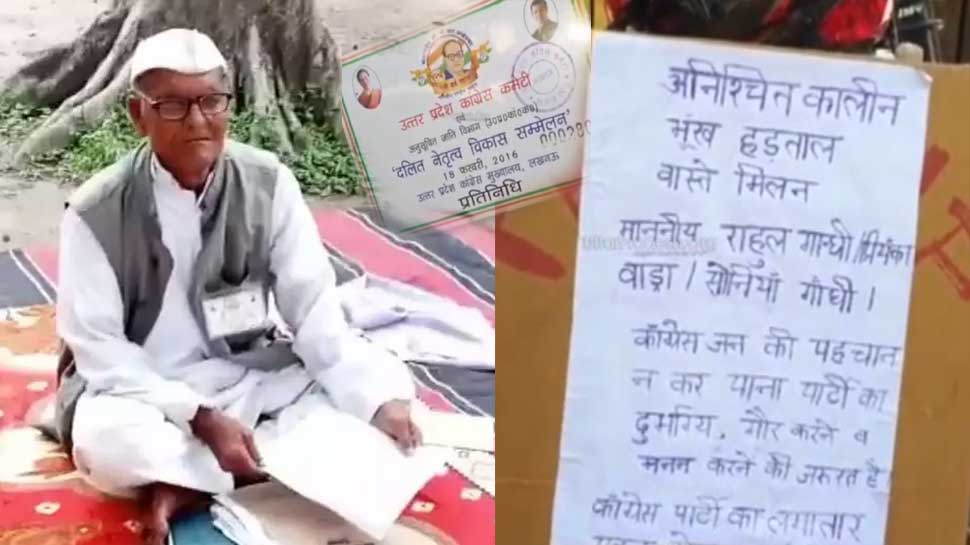 उत्तर प्रदेश कांग्रेस कमेटी
एवं
अनुसूचित जाति विभाग (उ०प्र०कां०क०)
'दलित नेतृत्व विकास सम्मेलन'
18 फरवरी, 2016
उत्तर प्रदेश कांग्रेस मुख्यालय, लखनऊ
प्रतिनिधि
अनिश्चित कालीन
भूख हड़ताल
वास्ते मिलन
माननीय राहुल गान्धी/प्रियंका
वाड्रा / सोनियाँ गाँधी ।
काँग्रेस जन की पहचान
न कर पाना पार्टी का
दुर्भाग्य, गौर करने व
मनन करने की जरूरत है
काँग्रेस पार्टी का लगातार